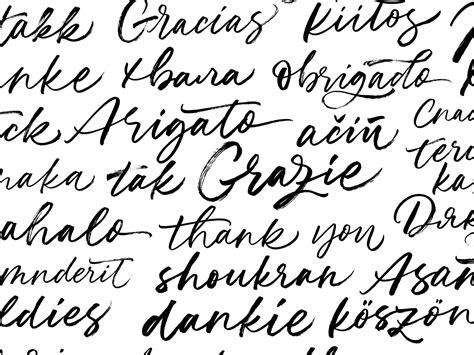 takk Gracias Kiitos
nke хвала Obrigado
ck Arigato ačiū Спас
maka tak Grazie terc
ahalo thank you Dźk
mnderit shoukran Asan
ddies dankie köszön